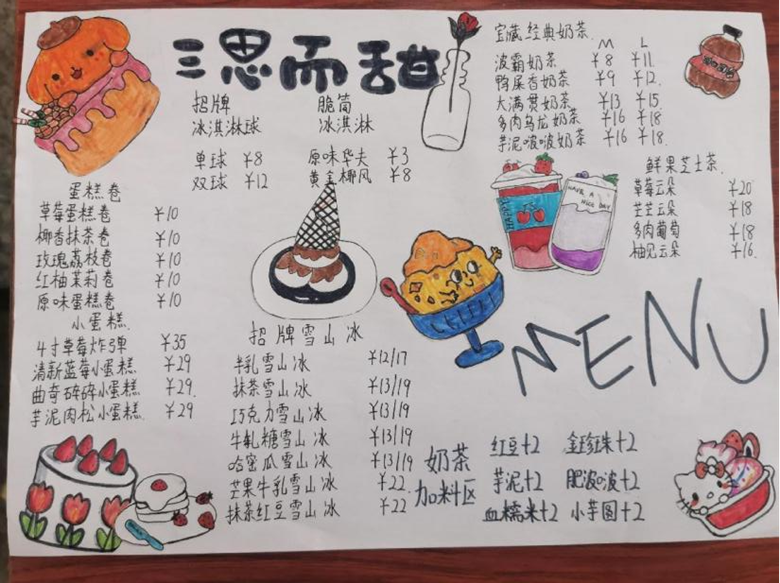 三思而甜
招牌
冰淇淋球
单球 ¥8
双球 ¥12
脆筒
冰淇淋
原味华夫 ¥3
黄金椰风 ¥8
宝藏经典奶茶
M L
波霸奶茶 ¥8 ¥11
鸭屎香奶茶 ¥9 ¥12
大满贯奶茶 ¥13 ¥15
多肉乌龙奶茶 ¥16 ¥18
芋泥啵啵奶茶 ¥16 ¥18
鲜果芝士茶
草莓云朵 ¥20
芒芒云朵 ¥18
多肉葡萄 ¥18
柚见云朵 ¥16
HAPPY
HAVE A
NICE DAY
蛋糕卷
草莓蛋糕卷 ¥10
椰香抹茶卷 ¥10
玫瑰荔枝卷 ¥10
红柚茉莉卷 ¥10
原味蛋糕卷 ¥10
小蛋糕
4寸草莓炸弹 ¥35
清新蓝莓小蛋糕 ¥29
曲奇碎碎小蛋糕 ¥29
芋泥肉松小蛋糕 ¥29
招牌雪山冰
半乳雪山冰 ¥12/17
抹茶雪山冰 ¥13/19
巧克力雪山冰 ¥13/19
牛轧糖雪山冰 ¥13/19
哈密瓜雪山冰 ¥13/19
芒果牛乳雪山冰 ¥22
抹茶红豆雪山冰 ¥22
MENU
奶茶
加料区
红豆+2 金珍珠+2
芋泥+2 肥波波+2
血糯米+2 小芋圆+2